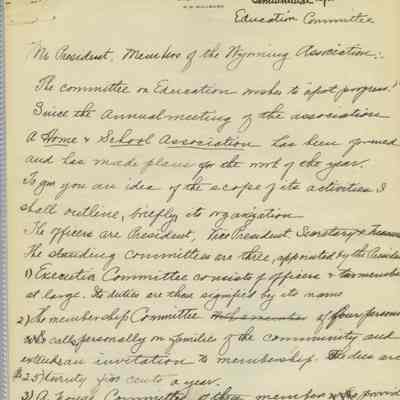 Education Committee
Mr President, Members of the Wyoming Association:
The committee on Education wishes to "report progress."
Since the Annual meeting of the association
A Home & School Association has been formed
and has made plans for the work of the year.
To give you an idea of the scope of its activities I
shall outline, briefly its organization
The officers are President, Vice President Secretary &
The standing Committees are three, appointed by the
1) Executive Committee consists of officers & two
at large. Its duties are those signified by its name
2) The membership Committee of four persons
who calls personally on families of the community and
extends an invitation to membership. The dues are
$.25) twenty five cents a year.
3) A Committee of three members